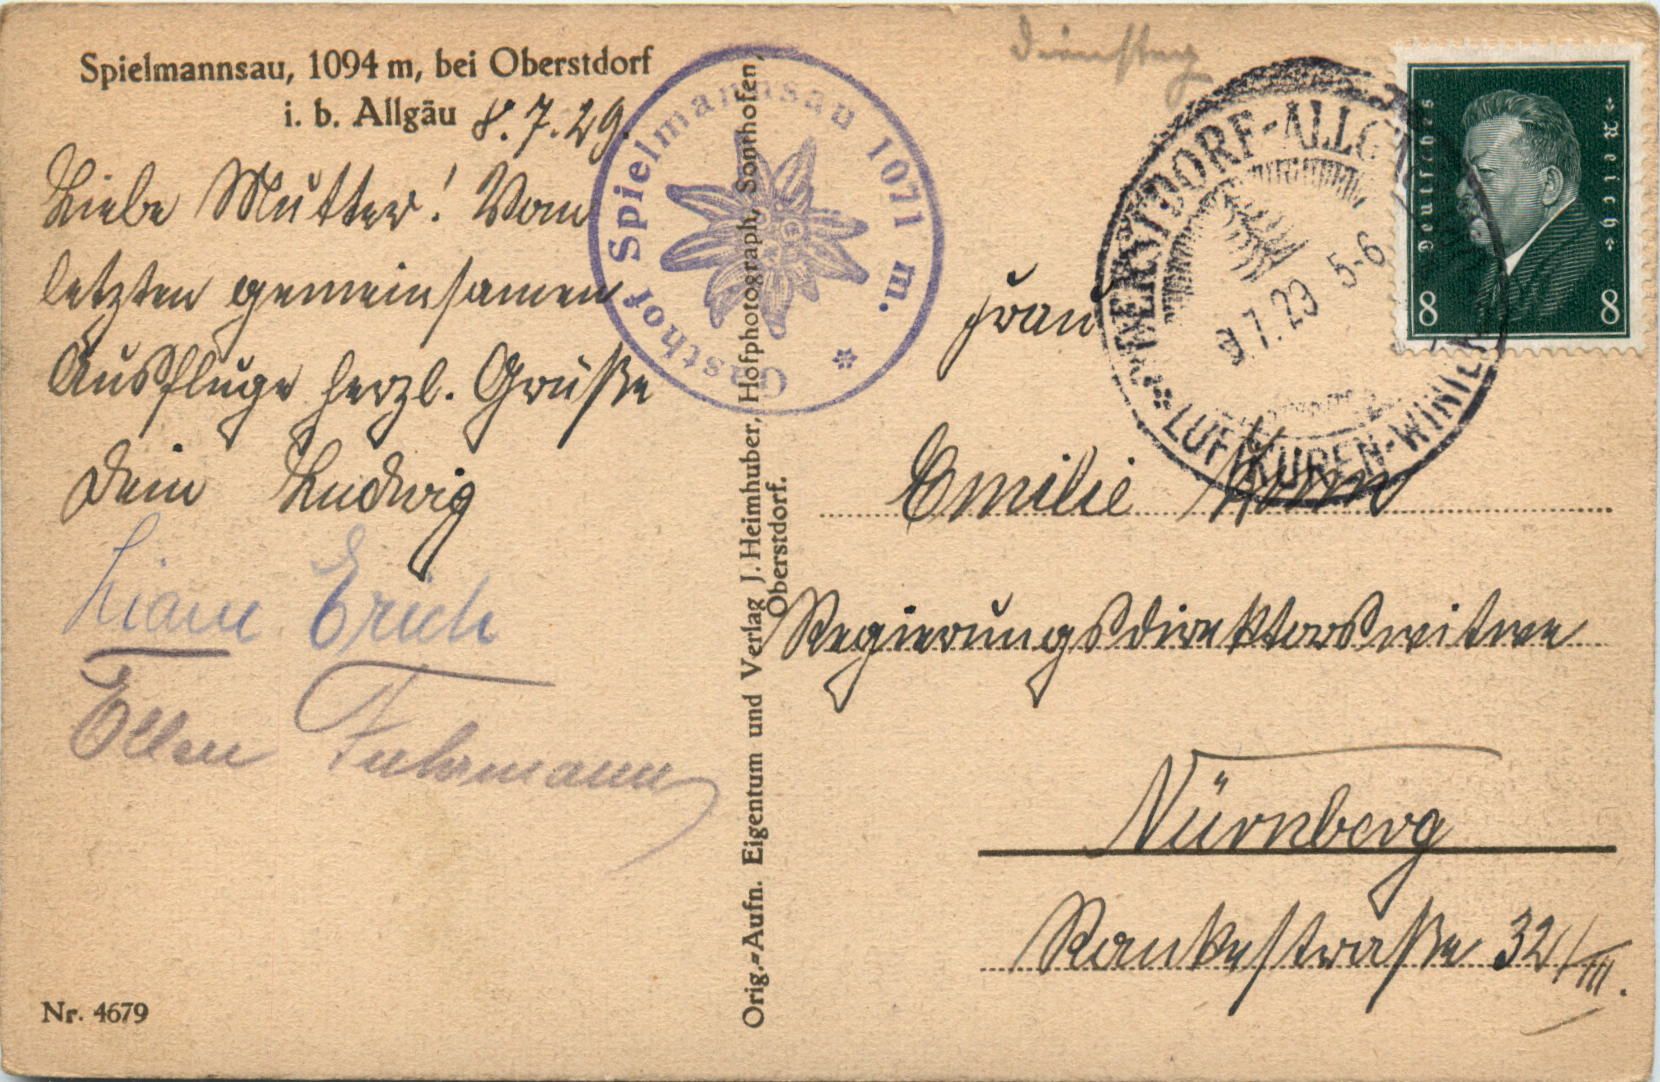 Spielmannsau, 1094 m, bei Oberstdorf
i. b. Allgäu 8.7.29.
Liebe Mutter! Vom
letzten gemeinsamen
Ausfluge herzl. Grüße
Dein Ludwig
Erich
Ellen Fuhrmann
Nr. 4679
Gasthof Spielmannsau 1071 m.
Orig.-Aufn. Eigentum und Verlag J. Heimhuber, Hofphotograph, Sonthofen,
Oberstdorf.
Dienstag
OBERSTDORF-ALLGÄU
7.29 5-6
LUFTKUREN-WINTER
Deutsches Reich
8 8
Frau
Emilie
Regierungsdirektorswitwe
Nürnberg
Rankestraße 32/III.